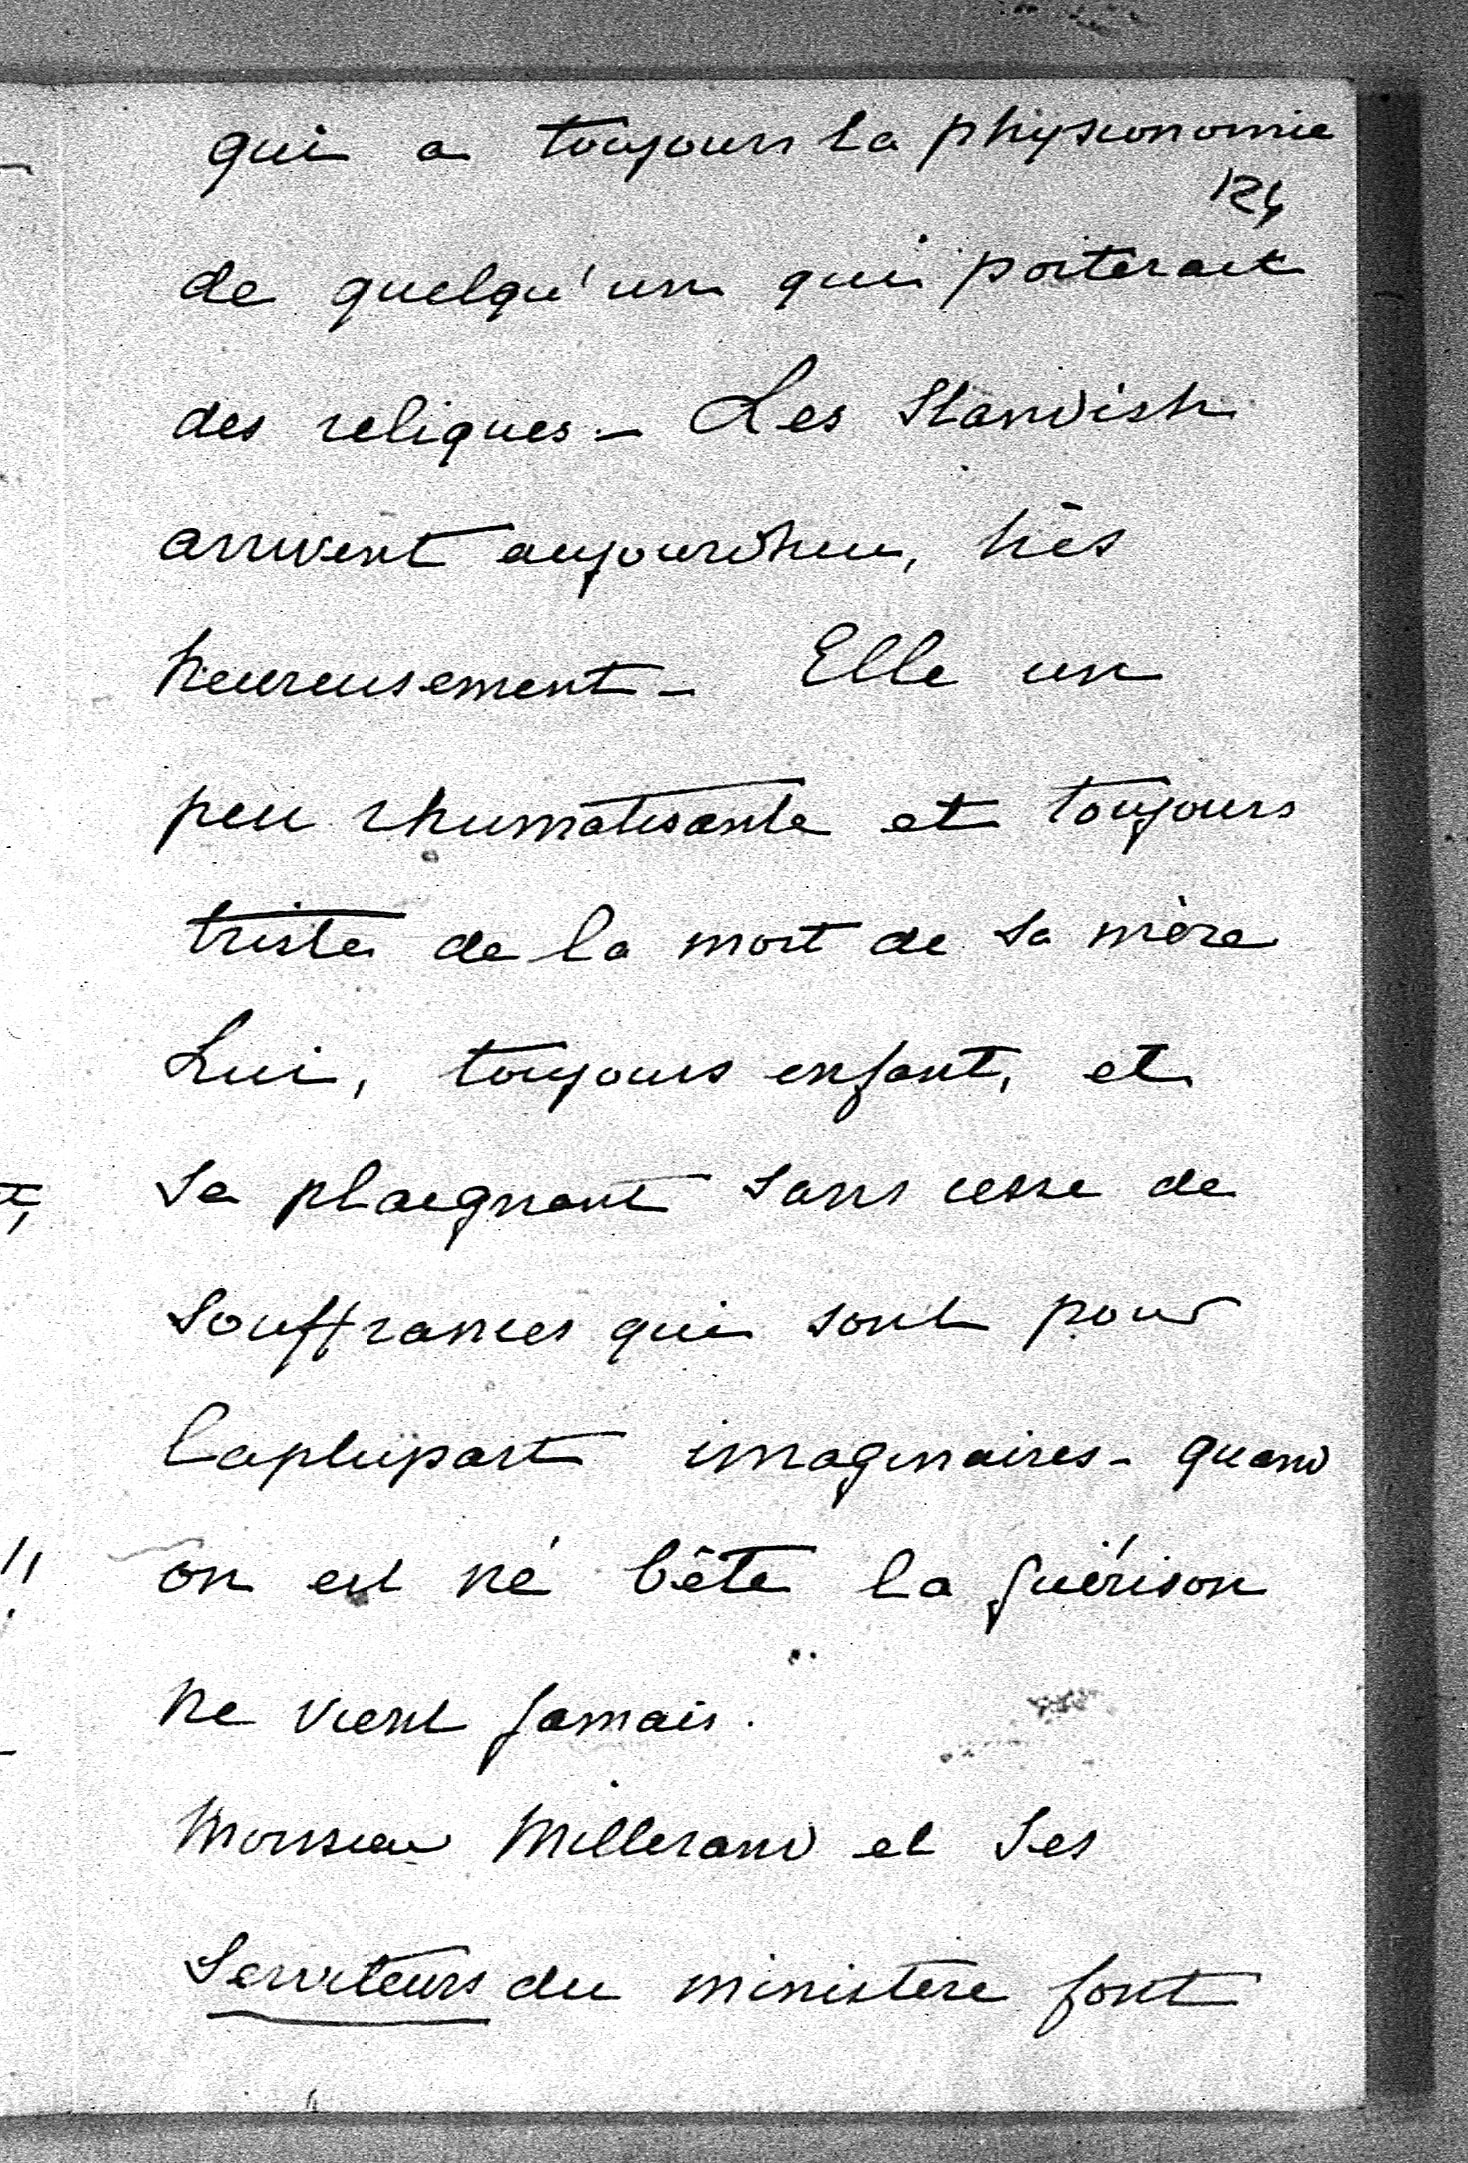 qui a toujours la physionomie
124
de quelqu'un qui porterait
des reliques - Les Standish
arrivent aujourdhui, très
heureusement - Elle un
peu rhumatisante et toujours
triste de la mort de sa mère
Lui, toujours enfant, et
se plaignant sans cesse de
souffrances qui sont pour
laplupart imaginaires - quand
on est né bête la guérison
ne vient jamais.
Monsieur Millerand et ses
serviteurs du ministère font